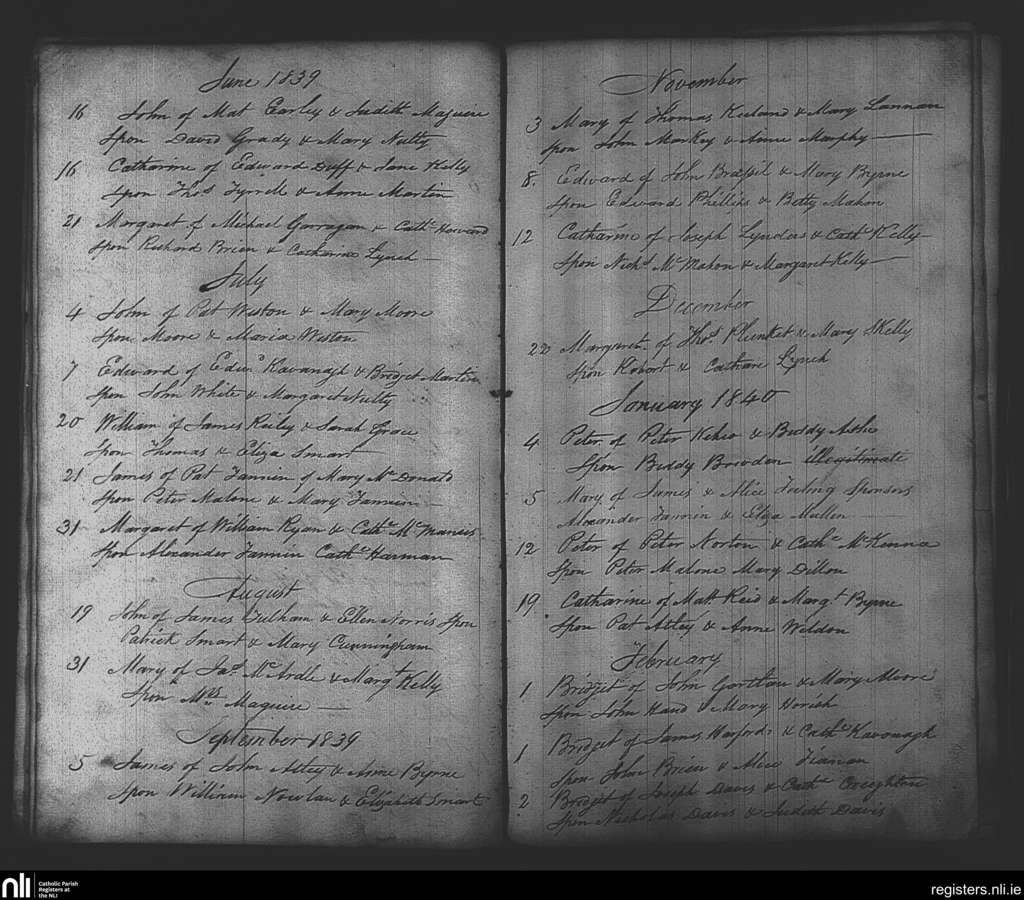 June 1839
16 John of Mat Earley & Judith Maguire
Spon David Grady & Mary Nulty
16 Catharine of Edward Duff & Jane Kelly
Spon Thos Tyrrell & Anne Martin
21 Margaret of Michael Garragan & Cathe
Spon Richard Brien & Catharine Lynch
July
4 John of Pat Weston & Mary Moore
Spon Moore & Maria Weston
7 Edward of Edwd Kavanagh & Bridget Martin
Spon John White & Margaret Nulty
20 William of James Reiley & Sarah Grace
Spon Thomas & Eliza Smart
21 James of Pat Fannin of Mary Mc Donald
Spon Peter Malone & Mary Fannin
31 Margaret of William Ryan & Cathe Mc Manus
Spon Alexander Fannin Cathe Harman
August
19 John of James Fulham & Ellen Norris Spon
Patrick Smart & Mary Cunningham
31 Mary of Jas Mc Ardle & Margt Kelly
Spon Mrs Maguire
September 1839
5 James of John Astey & Anne Byrne
Spon William Nowlan & Elizabeth Smart
November
3 Mary of Thomas & Mary Lannan
Spon John Markey & Anne Murphy
8. Edward of John & Mary Byrne
Spon Edward Phillips & Betty Mahon
12 Catharine of Joseph Lynders & Cathe Kelly
Spon Nichs Mc Mahon & Margaret Kelly
December
22 Margaret of Thos Plunket & Mary Skelly
Spon Robert & Catharine Lynch
January 1840
4 Peter of Peter Kehoe & Biddy Ashe
Spon Biddy Bowden illegitimate
5 Mary of James & Alice Sponsors
Alexander Fannin & Eliza Mullen
12 Peter of Peter Norton & Cathe Mc Kenna
Spon Peter Malone Mary Dillon
19 Catharine of Matt Reid & Margt Byrne
Spon Pat Astey & Anne Weldon
February
1 Bridget of John Gartlan & Mary Moore
Spon John Hand & Mary Horish
1 Bridget of James & Cathe Kavanagh
Spon John Brien & Alice
2 Bridget of Joseph Davis & Cathe Creighton
Spon Nicholas Davis & Judith Davis
nli Catholic Parish
Registers at
the NLI
registers.nli.ie